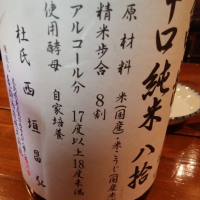 辛口 純米 八拾
原材料 米(国産)・米こうじ(国産米
精米歩合 8割
アルコール分 17度以上18度未満
使用酵母 自家培養
杜氏 西垣昌弘